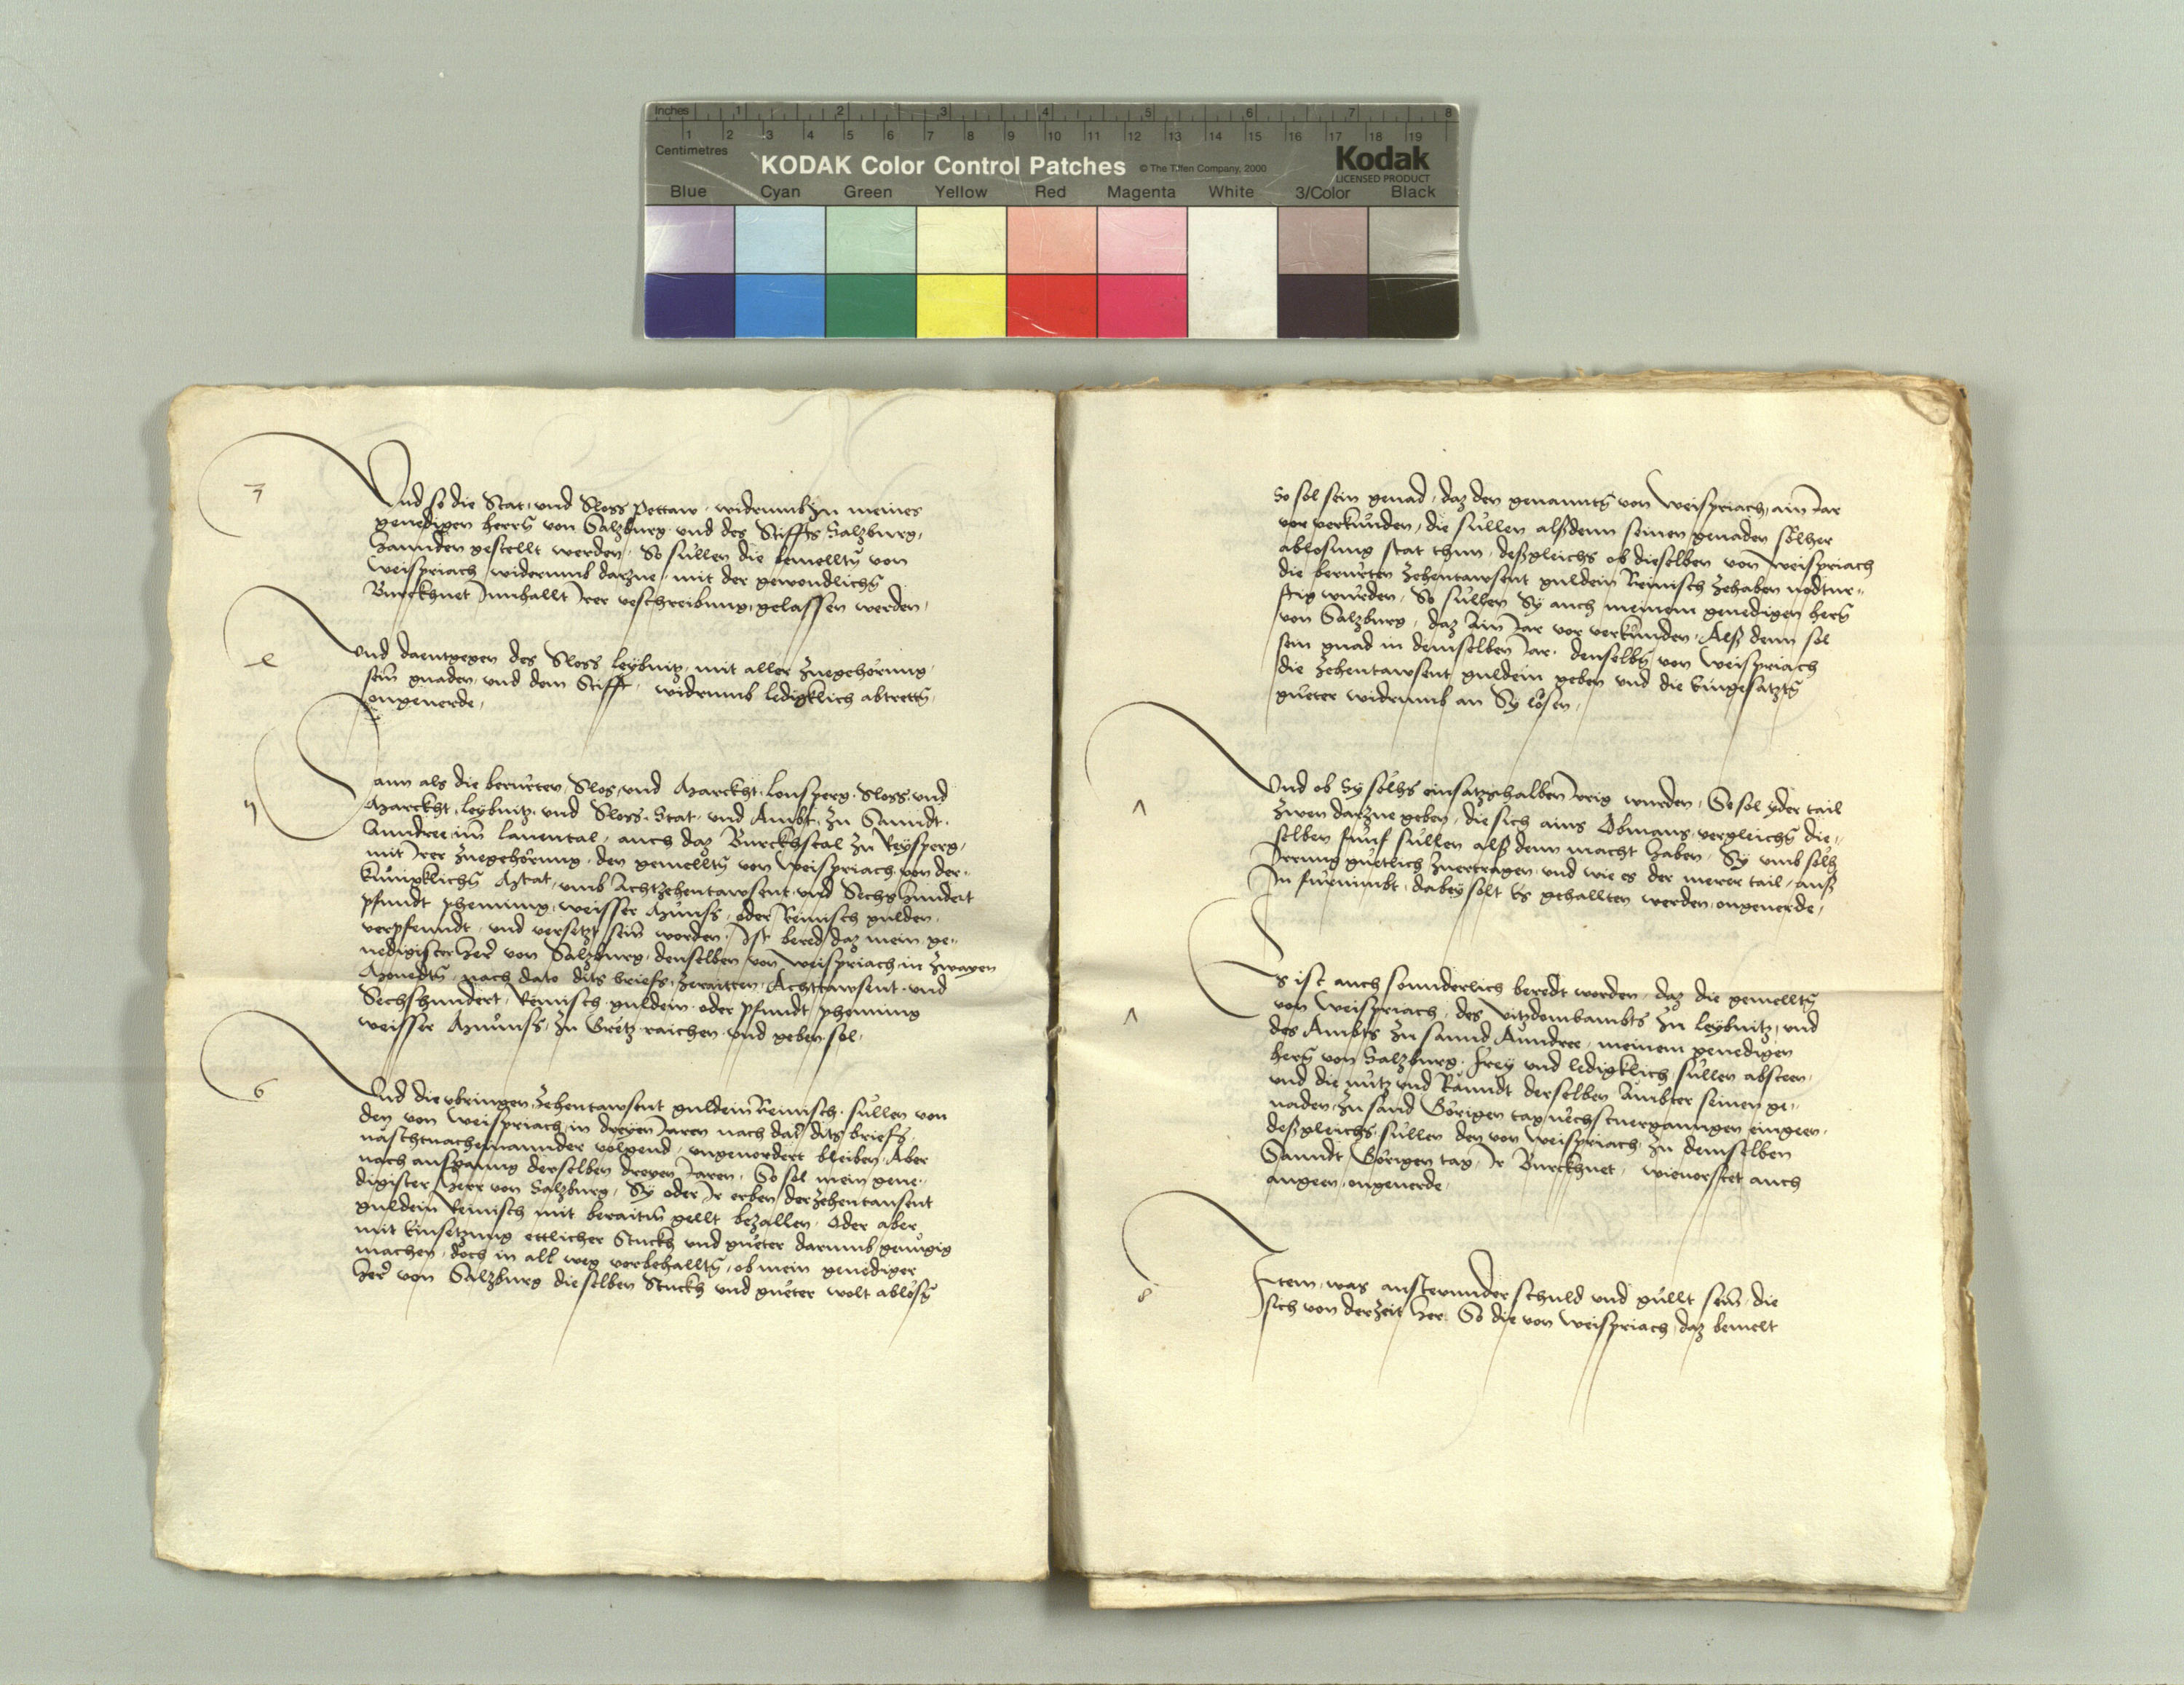 Inches 1 2 3 4 5 6 7 8
1 2 3 4 5 6 7 8 9 10 11 12 13 14 15 16 17 18 19
Centimetres
KODAK Color Control Patches © The Tiffen Company, 2000 Kodak
LICENSED PRODUCT
Blue Cyan Green Yellow Red Magenta White 3/Color Black
Vnd so die Stat, vnd Sloss Pettaw, widrumb zu meines
genedigen herrn von Salzburg vnd des Stiffts Salzburg,
hannden gestellt werden, So sullen die bemelltn von
Weispriach widerumb darzue, mit der gewondlichn
Burckhuet Innhallt Irer verschreibung, gelassen werden,
Vnd daentgegen des Sloss Leybnitz, mit aller zuegehörung,
sein gnaden, vnd dem Stifft, widrumb ledigklich abtrettn,
ongeuerde,
Dann als die berurten, Slos, vnd Marckht, Lonsperg, Sloss, vnd
Marckht, Leybnitz, vnd Sloss, Stat, vnd Ambt, zu Sanndt,
Anndree, im Lauental, auch daz Burckhstal zu Reysperg,
mit Irer zuegehörung, den gemelltn von Weispriach, von der
kunigklichn Mtat, vmb Achtzehentawsent, vnd Sechshundert
pfundt phenning, weisser Munss, oder Reinisch gulden,
verpfenndt, vnd versetzt sein worden, Ist bered, daz mein ge-
nedigister herr von Salzburg, denselben von Weispriach, in zwayen
Monedtn, nach dato dits briefs, zeraitten, Achttawsent, vnd
Sechshundert, Reinisch, guldein, oder pfundt, phening
weisser Munss, zu Gretz, raichen, vnd geben sol,
6
Vnd die vbringen, Zehentawsent guldein Reinisch, sullen von
den von Weispriach, in dreyen Jaren nach dat dits briefs,
naschtnacheinannder volgend, vngeuordert bleiben, Aber
nach ausganng derselben dreyen Jaren, So sol mein gene-
digister herr von Salzburg, Sy oder Ir erben, der zehentausent
guldein Reinisch mit beraitm gellt bezallen, Oder aber
mit Einsetzung ettlicher Stuckh vnd gueter darumb genugig
machen, doch in all weg vorbehalltn, ob mein genediger
herr von Salzburg dieselben Stuckh vnd gueter wolt ablosn
So sol sein genad, daz den genanntn von Weispriach, ain Jar
vor verkunden, die sullen alßdenn seinen genaden sölher
ablosung stat thun, deßgleichs ob dieselben von Weispriach
die berurten zehentawsent guldein Reinisch zehaben nodtur-
ftig wurden, So sullen Sy auch meinem genedigen hern
von Salzburg, daz ain Jar vor verkunden, Alß denn sol
sein gnad in demselben Jar, denselbn von Weispriach
die zehentawsent guldein geben vnd die Eingesatztn
gueter widrumb an Sy lösen,
Vnd ob Sy sölhs einsatzshalben Irrig wurden, So sol yder tail
zwen darzue geben, die sich ains Obmans, vergleichn, die-
selben funf sullen alß denn macht haben, Sy vmb sölh
Irrung guetlich zuertragen, vnd wie es der merer tail, auß
In furnimbt, dabey solt Es gehallten werden, ongeuerde,
Es ist auch sonnderlich beredt worden, daz die gemelltn
von Weispriach, des Vitzdombambts zu Leybnitz, vnd
des Ambts zu sannd Anndree, meinem genedigen
hern von Salzburg, frey vnd ledigklich sullen absteen,
vnd die nutz vnd Ränndt derselben Ambter seinen ge-
naden, zu sand Görigen tag nechstuergangen eingeen,
deßgleichs sullen den von Weispriach, zu demselben
Sanndt Görigen tag, Ir Burckhuet, wieuorstet auch
angeen, ongeuerde,
Item, was aussteunder schuld vnd gullt sein, die
sich von der zeit her, So die von Weispriach, daz bemelt